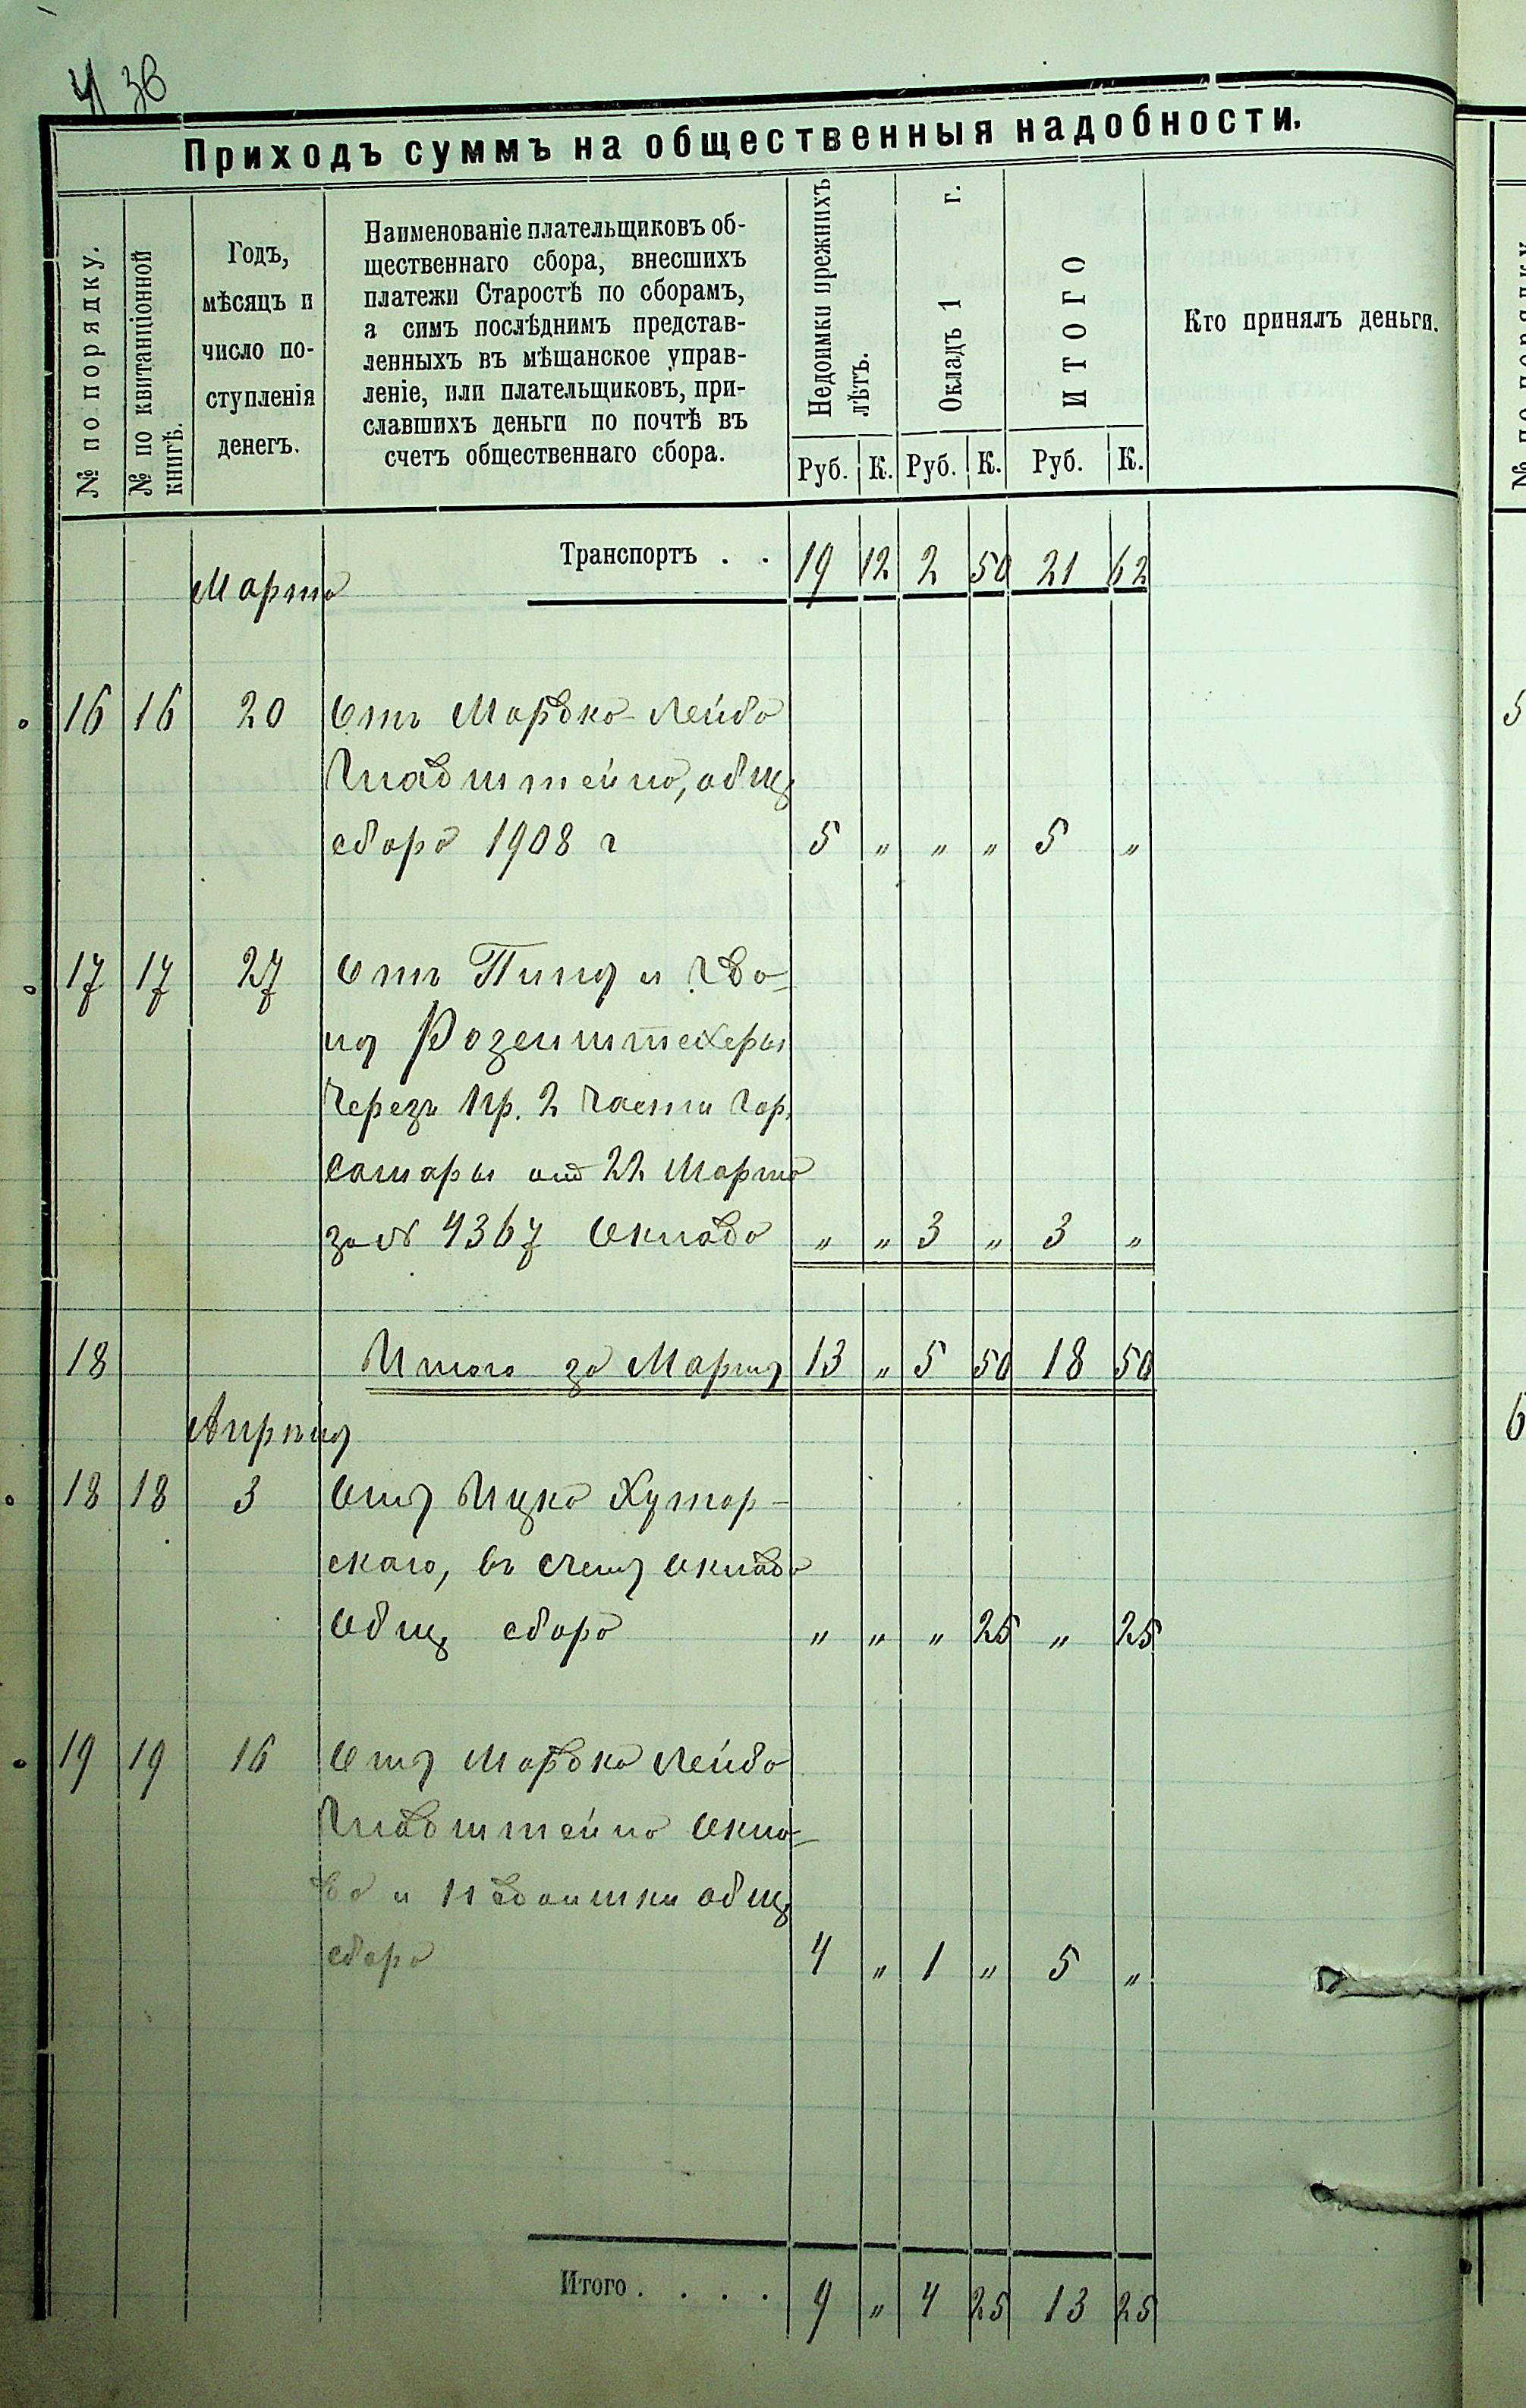 4 36
Приходъ суммъ на общественныя надобности.
№ по порядку.
№ по квитанціонной книгѣ.
Годъ,
мѣсяцъ и
число по-
ступленія
денегъ.
Наименованіе плательщиковъ об-
щественнаго сбора, внесшихъ
платежи Старостѣ по сборамъ,
а симъ послѣднимъ представ-
ленныхъ въ мѣщанское управ-
леніе, или плательщиковъ, при-
славшихъ деньги по почтѣ въ
счетъ общественнаго сбора.
Недоимки прежнихъ
лѣтъ.
Окладъ 1 г.
ИТОГО
Кто принялъ деньги.
Руб. К. Руб. К. Руб. К.
Транспортъ . . 19 12 2 50 21 62
Марта
16 16 20 Отъ Мордко-Лейба
Гладштейна, общ
сбора 1908 г 5 " " " 5 "
17 17 27 Отъ и
Розенштехеры
Черезъ пр. 2 части гор.
Самары от 22 Марта
за № 4367 Оклада " " 3 " 3 "
18 Итого за Мартъ 13 " 5 50 18 50
Апрѣль
18 18 3 Отъ Ицка Хутор-
скаго, въ счетъ оклада
Общ сбора " " " 25 " 25
19 19 16 Отъ Мордко Лейба
Гладштейна Окла-
да и недоимки общ
сбора 4 " 1 " 5 "
Итого . . . . 9 " 4 25 13 25